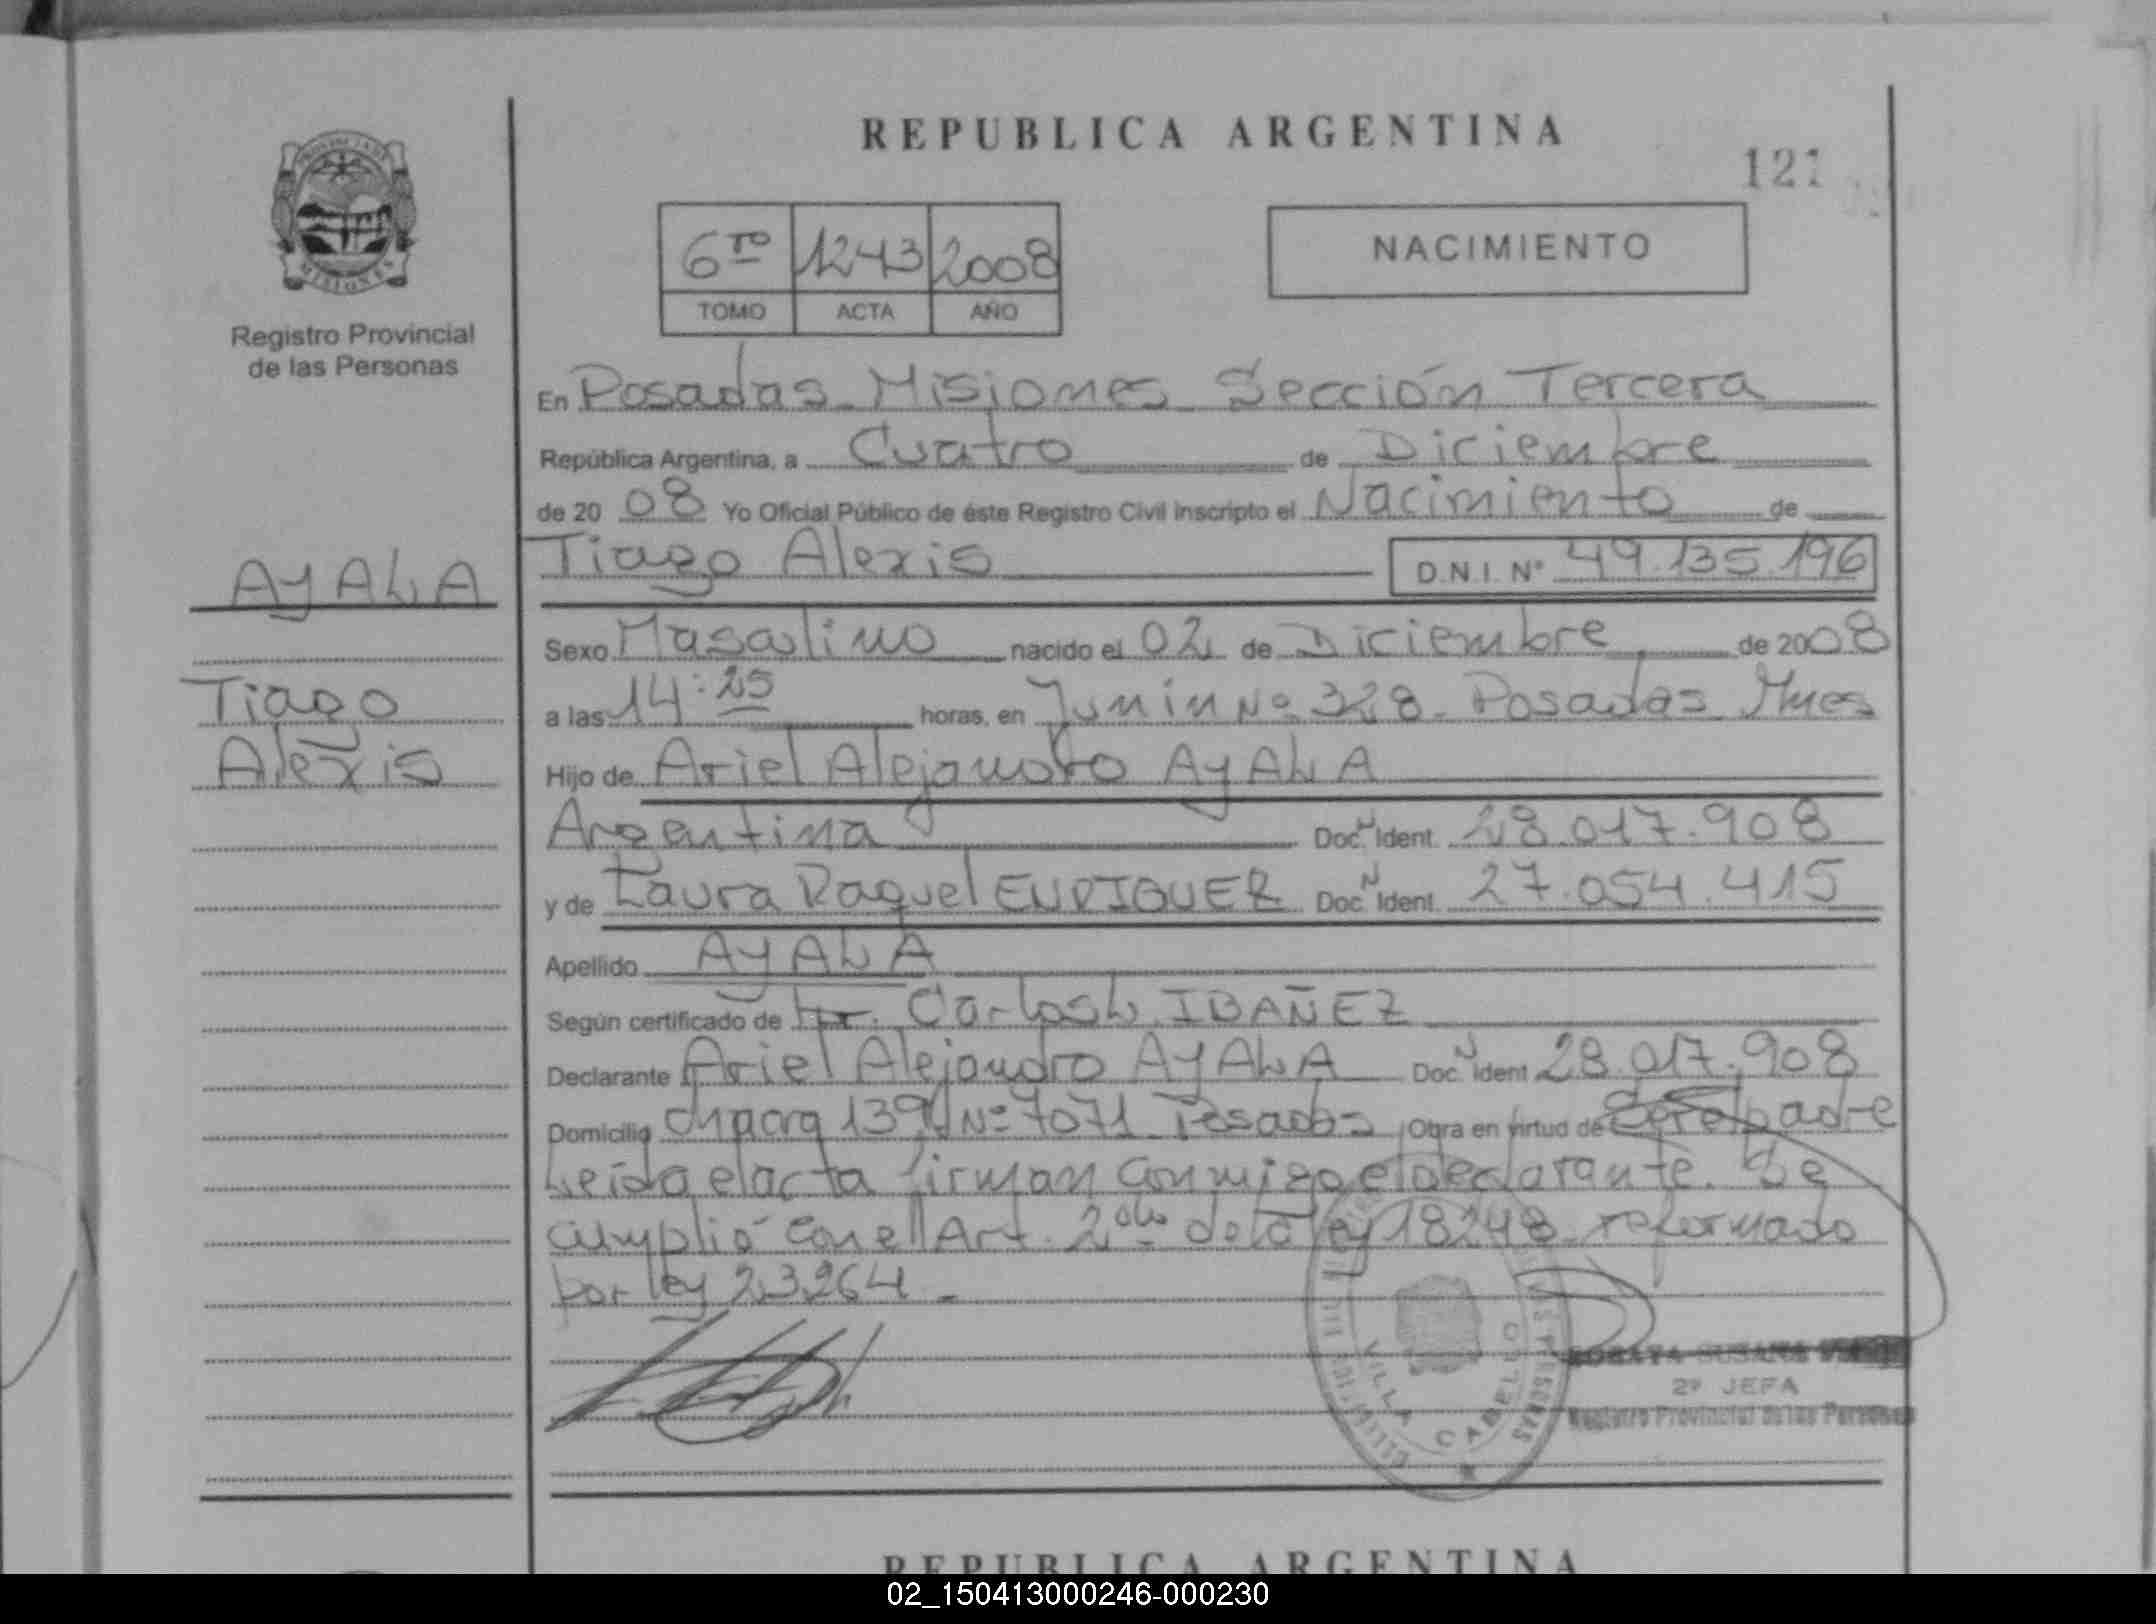 REPUBLICA ARGENTINA
121
MISIONES
Registro Provincial
de las Personas
6to 1243 2008
TOMO ACTA AÑO
NACIMIENTO
En Posadas Misiones Sección Tercera
República Argentina, a Cuatro de Diciembre
de 20 08 Yo Oficial Público de éste Registro Civil Inscripto el Nacimiento de
AYALA
Tiago Alexis D.N.I. Nº 49.135.196
Sexo Masculino nacido el 02 de Diciembre de 2008
Tiago
a las 14:25 horas, en Junin Nº 328 Posadas Mnes
Alexis
Hijo de Ariel Alejandro AYALA
Argentina Doc. Ident. 28.017.908
y de Laura Raquel ENRIQUEZ Doc. Ident. 27.054.415
Apellido AYALA
Según certificado de Carlos L. IBAÑEZ
Declarante Ariel Alejandro AYALA Doc. Ident 28.017.908
Domicilio Chacra 139 Nº 7071 Posadas Obra en virtud de padre
Leida el acta firman conmigo el declarante. Se
cumplió con el Art. 2do de la ley 18248 reformado
por ley 23264 -
VILLA CABELLO
SUSANA
2º JEFA
Registro Provincial de las Personas
REPUBLICA ARGENTINA
02_150413000246-000230